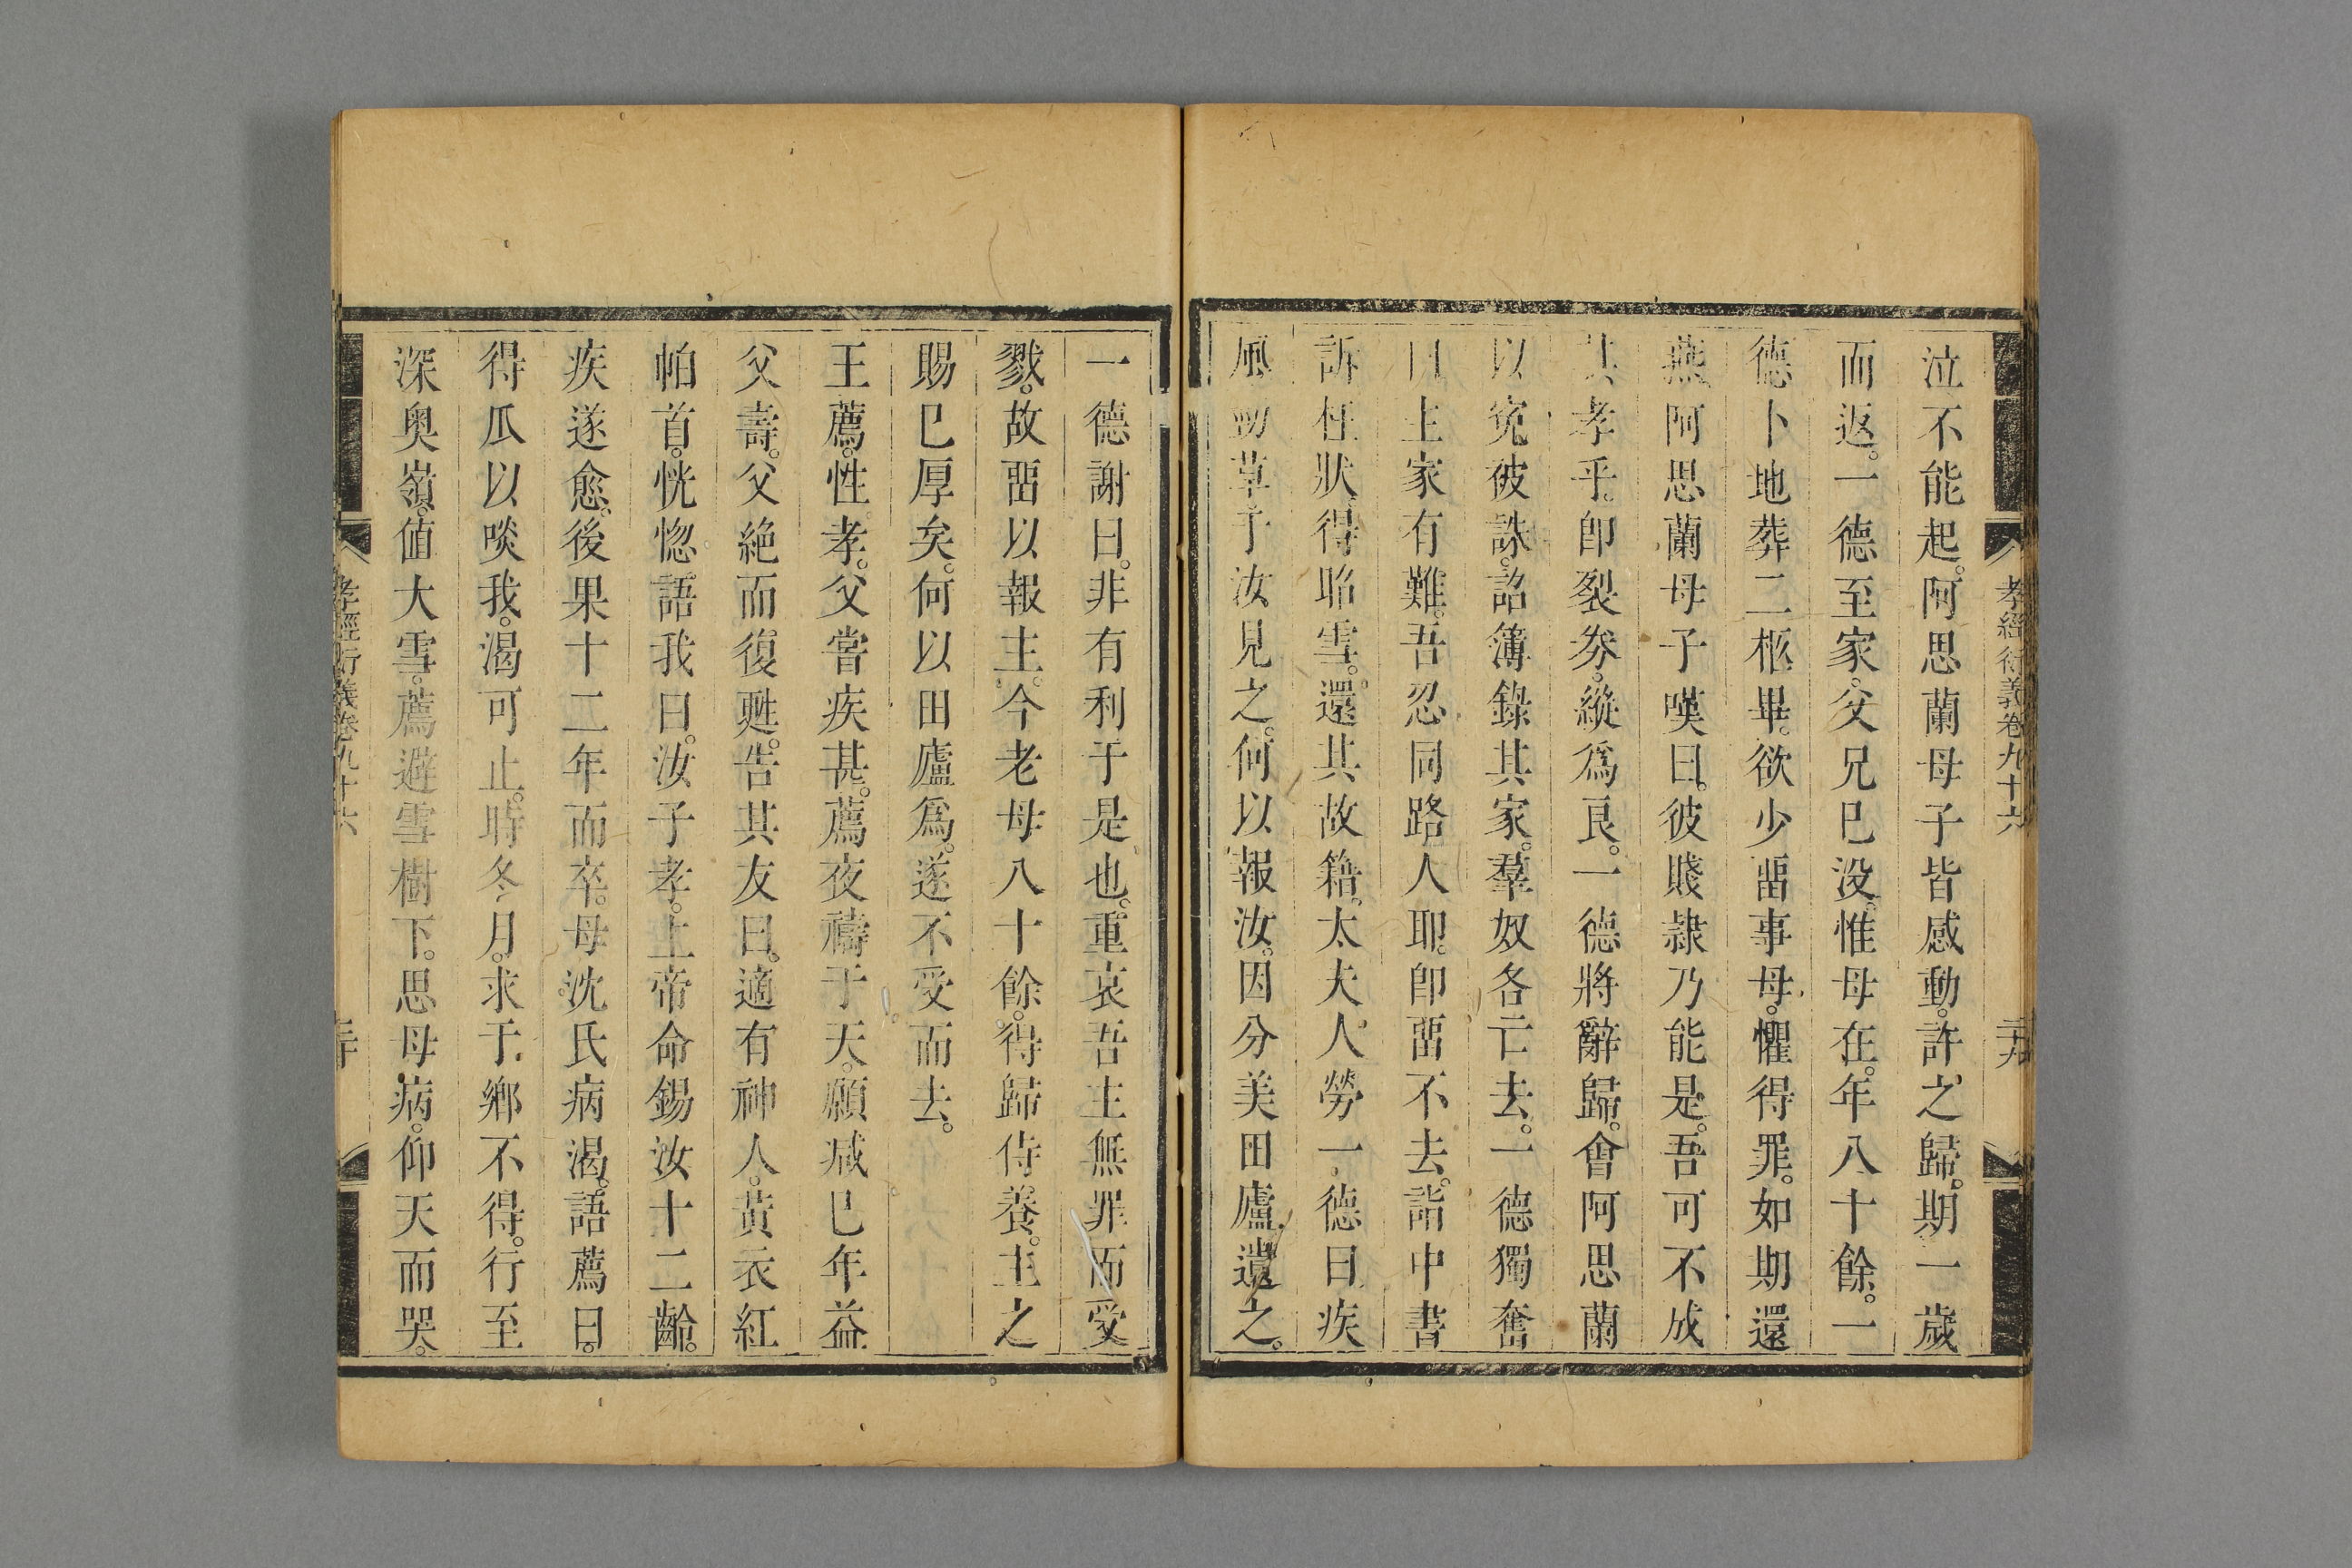 孝經衍義卷九十六 二十九
泣不能起。阿思蘭母子皆感動。許之歸。期一歲
而返。一德至家。父兄巳没。惟母在。年八十餘。一
德卜地葬二柩畢。欲少畱事母。懼得罪。如期還
燕阿思蘭母子嘆曰。彼賤隷乃能是。吾可不成
其孝乎。卽裂券。縱爲良。一德將辭歸。會阿思蘭
以寃被誅。詔簿錄其家。羣奴各亡去。一德獨奮
曰主家有難。吾忍同路人耶。卽畱不去。詣中書
訴枉狀。得昭雪。還其故籍。太夫人勞一德曰疾
風勁草予汝見之。何以報汝。因分美田廬遺之。
一德謝曰。非有利于是也。重哀吾主無罪而受
戮。故畱以報主。今老母八十餘。得歸侍養。主之
賜巳厚矣。何以田廬爲。遂不受而去。
王薦。性孝。父嘗疾甚。薦夜禱于天。願减巳年益
父壽。父絶而復甦。告其友曰。適有神人。黃衣紅
帕首。恍惚語我曰。汝子孝。上帝命錫汝十二齡。
疾遂愈。後果十二年而卒。母沈氏病渴。語薦曰。
得瓜以啖我。渴可止。時冬月。求于鄉不得。行至
深奥嶺。値大雪。薦避雪樹下。思母病。仰天而哭。
孝經衍義卷九十六 三十